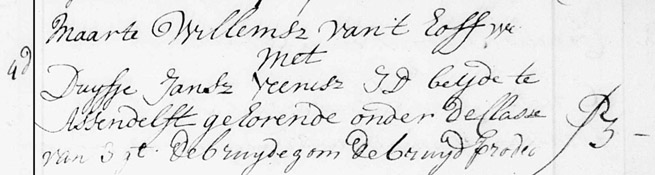 Maarte Willemsz van't Hoff we
met
4d
Duyfje Jansz Veensz JD beyde te
Assendelft gehorende onder de Classe
van 3 gt. de bruydegom de bruyd prodeo